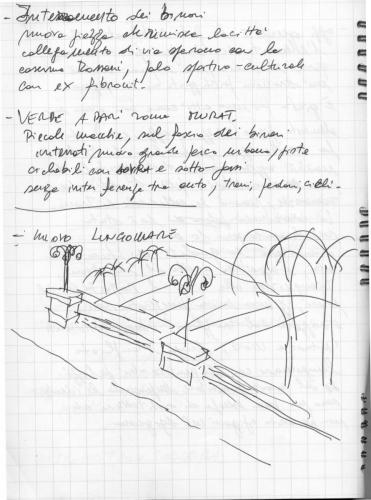 - Interramento dei binari
nuova piazza che riunisce la città
collegamento di via Sparano con la
caserma Rossani, polo sportivo-culturale
con ex fibronit.
- VERDE A BARI zona MURAT.
Piccole macchie, sul fascio dei binari
interrati nuovo grande parco urbano, piste
ciclabili con sovra e sotto-passi
senza interferenze tra auto, treni, pedoni, cicli.
- NUOVO LUNGOMARE